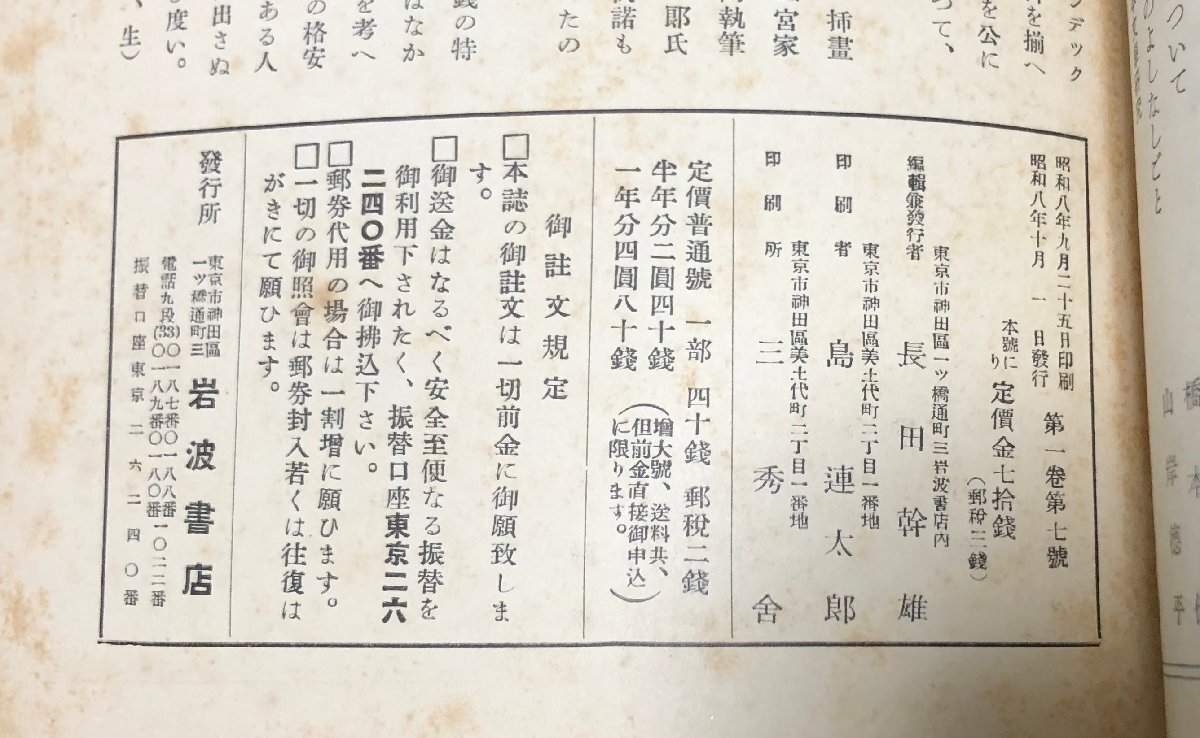 ついて
のよしなしごと
橋本
山岸德平
デック
を揃へ
を公に
つて、
挿畫
宮家
執筆
郎氏
諾も
たの
錢の特
はなか
を考へ
の格安
ある人
出さぬ
度い。
、生)
昭和八年九月二十五日印刷
昭和八年十月 一 日發行
第一卷第七號
本號に
り
定價金七拾錢
(郵稅三錢)
東京市神田區一ツ橋通町三岩波書店内
編輯兼發行者 長田幹雄
東京市神田區美土代町二丁目一番地
印刷者 島連太郎
東京市神田區美土代町二丁目一番地
印刷所 三秀舍
定價普通號 一部 四十錢 郵稅二錢
半年分二圓四十錢
一年分四圓八十錢
(增大號、送料共、
但前金直接御申込
に限ります。)
御註文規定
□本誌の御註文は一切前金に御願致しま
す。
□御送金はなるべく安全至便なる振替を
御利用下されたく、振替口座東京二六
二四〇番へ御拂込下さい。
□郵券代用の場合は一割增に願ひます。
□一切の御照會は郵券封入若くは往復は
がきにて願ひます。
發行所
東京市神田區
一ツ橋通町三
岩波書店
電話九段(33)〇一八七番〇一八八番
〇一八九番〇一八〇番一〇二二番
振替口座東京二六二四〇番